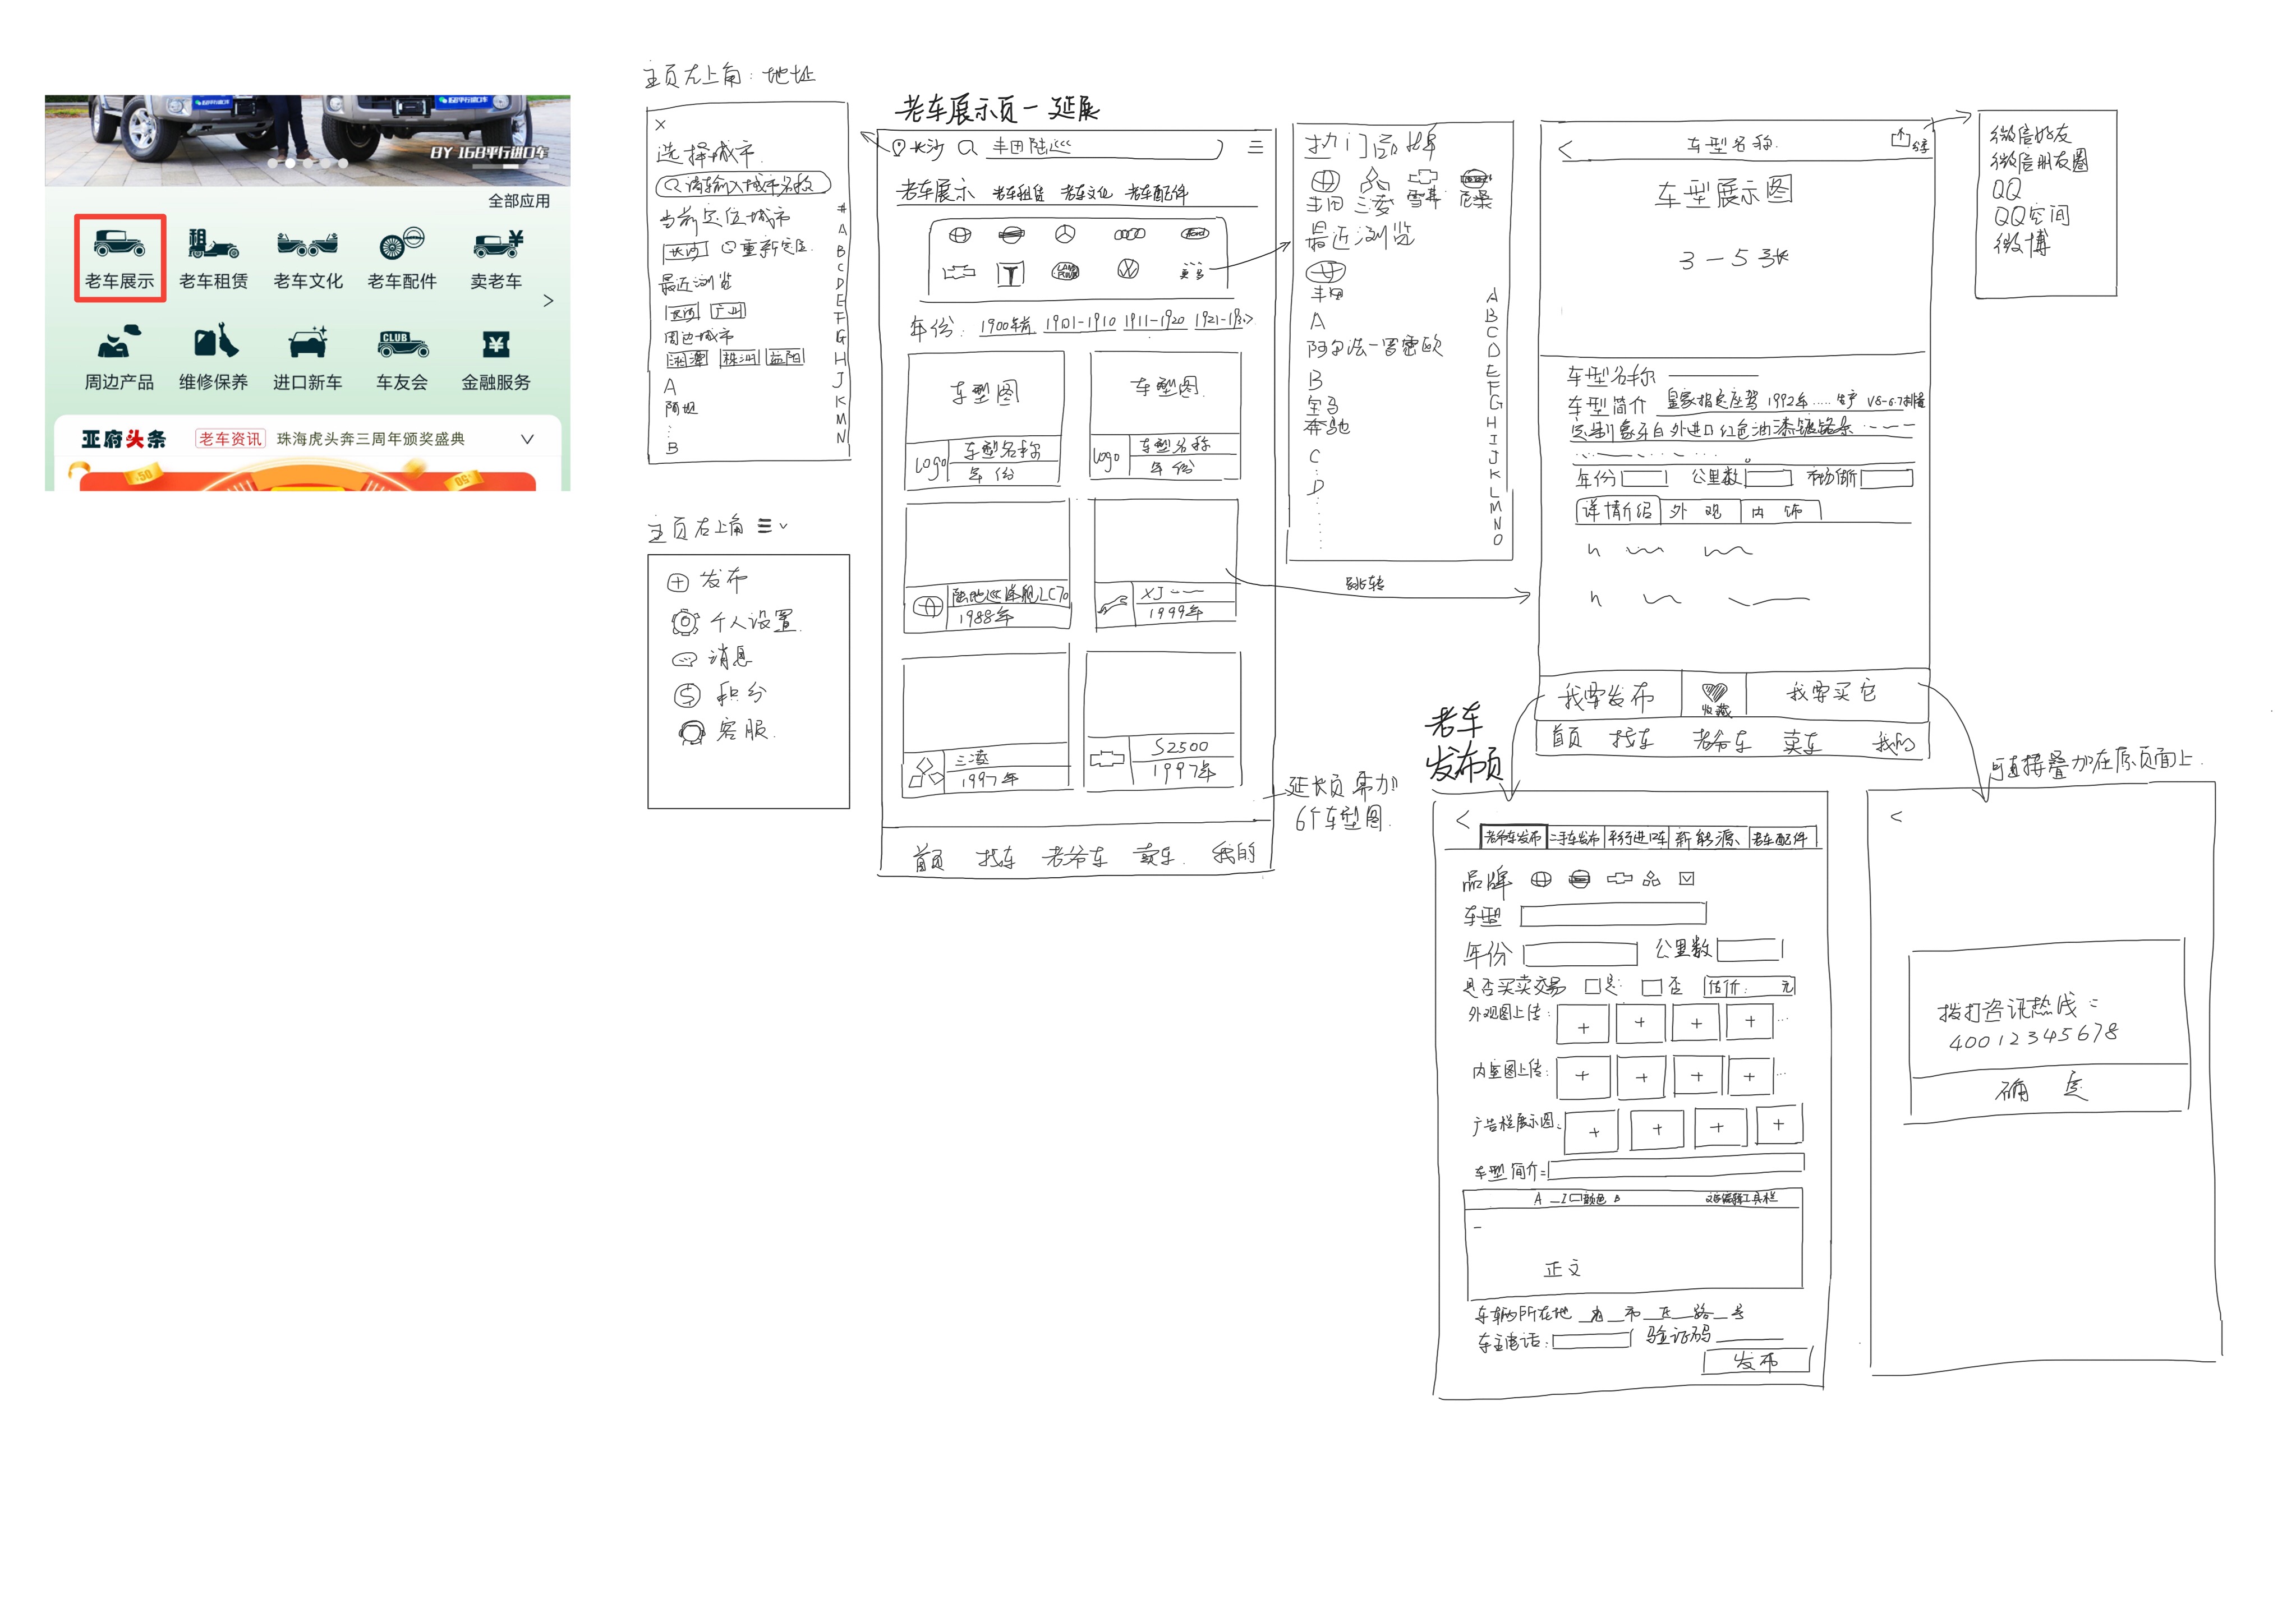 BY 168平行进口车
全部应用
老车展示 老车租赁 老车文化 老车配件 卖老车
周边产品 维修保养 进口新车 车友会 金融服务
CLUB
亚府头条 老车资讯 珠海虎头奔三周年颁奖盛典
主页左上角：地址
X
选择城市
请输入城市名称
当前定位城市
长沙 重新定位
最近浏览
长沙 广州
周边城市
湘潭 株洲 益阳
A
阿坝
B
# A B C D E F G H J K M N
主页右上角
发布
个人设置
消息
积分
客服
老车展示页－延展
长沙 丰田陆
老车展示 老车租赁 老车文化 老车配件
更多
年份： 1900年前 1901-1910 1911-1920 1921-
车型图 车型图
logo 车型名称 年份
logo 车型名称 年份
陆地巡洋舰LC70
1988年
XJ
1999年
三菱
1997年
S2500
1997年
延长页 需加
6个车型图
首页 找车 老爷车 卖车 我的
热门品牌
丰田 三菱 雪弗 尼桑
最近浏览
丰田
A
阿尔法-罗密欧
B
宝马
奔驰
C
D
A B C D E F G H I J K L M N O
跳转
< 车型名称 分享
车型展示图
3－5张
车型名称
车型简介 皇家指定座驾 1992年.....生产 V8-6.7排量
定制象牙白外进口红色油漆镀铬条
年份 公里数 市场价
详情介绍 外观 内饰
我要发布 收藏 我要买它
首页 找车 老爷车 卖车 我的
微信好友
微信朋友圈
QQ
QQ空间
微博
老车
发布页
<
老爷车发布 二手车发布 平行进口车 新能源 老车配件
品牌
车型
年份 公里数
是否买卖交易 是 否 估价： 元
外观图上传：
内室图上传：
广告栏展示图：
车型简介：
颜色 B 文字编辑工具栏
正文
车辆所在地 省 市 区 路 号
车主电话： 验证码
发布
可直接叠加在原页面上
<
拨打咨讯热线：
40012345678
确定